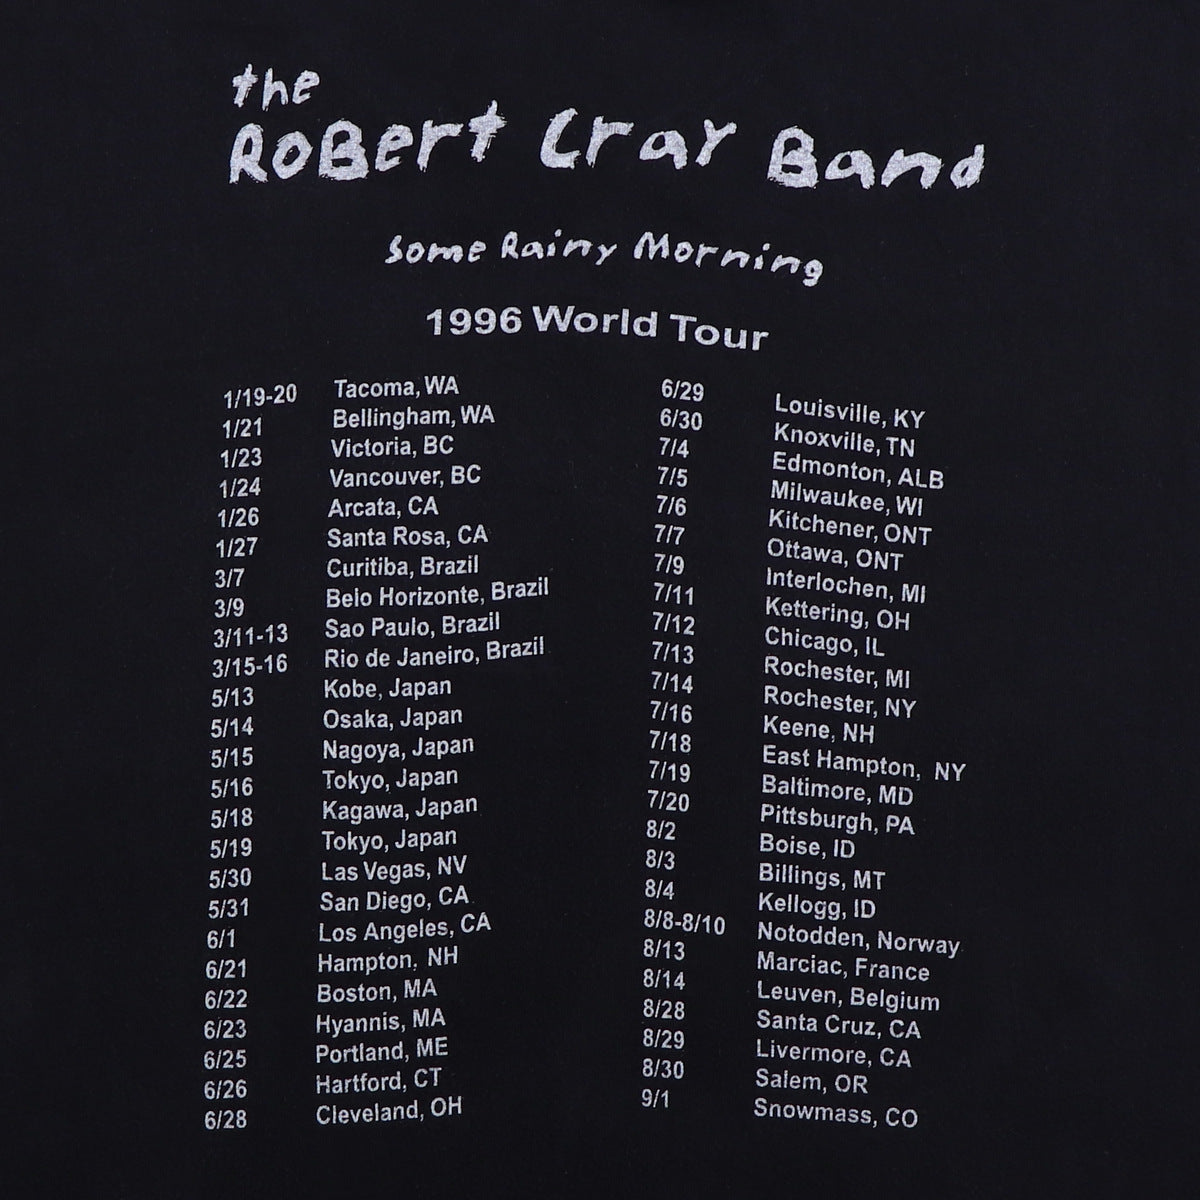 the
RoBert Cray Band
Some Rainy Morning
1996 World Tour
1/19-20 Tacoma, WA
1/21 Bellingham, WA
1/23 Victoria, BC
1/24 Vancouver, BC
1/26 Arcata, CA
1/27 Santa Rosa, CA
3/7 Curitiba, Brazil
3/9 Belo Horizonte, Brazil
3/11-13 Sao Paulo, Brazil
3/15-16 Rio de Janeiro, Brazil
5/13 Kobe, Japan
5/14 Osaka, Japan
5/15 Nagoya, Japan
5/16 Tokyo, Japan
5/18 Kagawa, Japan
5/19 Tokyo, Japan
5/30 Las Vegas, NV
5/31 San Diego, CA
6/1 Los Angeles, CA
6/21 Hampton, NH
6/22 Boston, MA
6/23 Hyannis, MA
6/25 Portland, ME
6/26 Hartford, CT
6/28 Cleveland, OH
6/29 Louisville, KY
6/30 Knoxville, TN
7/4 Edmonton, ALB
7/5 Milwaukee, WI
7/6 Kitchener, ONT
7/7 Ottawa, ONT
7/9 Interlochen, MI
7/11 Kettering, OH
7/12 Chicago, IL
7/13 Rochester, MI
7/14 Rochester, NY
7/16 Keene, NH
7/18 East Hampton, NY
7/19 Baltimore, MD
7/20 Pittsburgh, PA
8/2 Boise, ID
8/3 Billings, MT
8/4 Kellogg, ID
8/8-8/10 Notodden, Norway
8/13 Marciac, France
8/14 Leuven, Belgium
8/28 Santa Cruz, CA
8/29 Livermore, CA
8/30 Salem, OR
9/1 Snowmass, CO